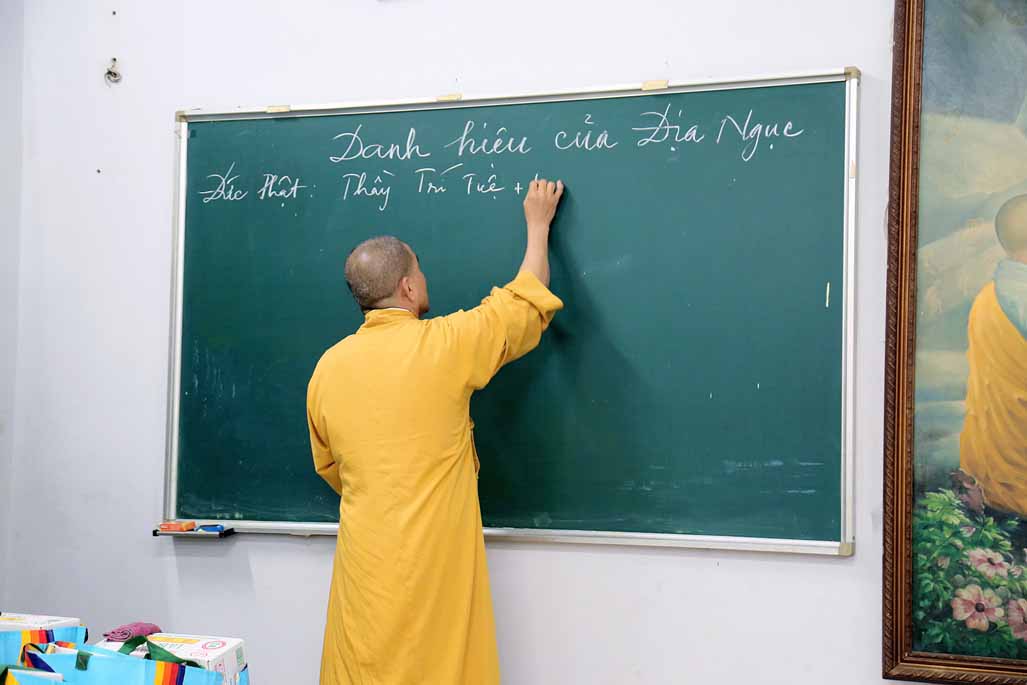 Danh hiệu của Địa Ngục
Đức Phật: Thầy Trí Tuệ +